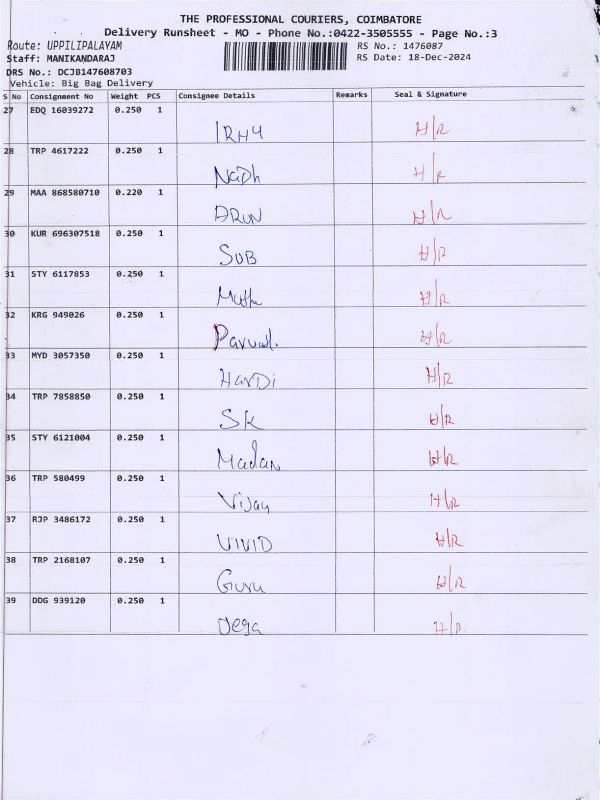 THE PROFESSIONAL COURIERS, COIMBATORE
Delivery Runsheet - MO - Phone No.:0422-3505555 - Page No.:3
Route: UPPILIPALAYAM RS No.: 1476087
Staff: MANIKANDARAJ RS Date: 18-Dec-2024
DRS No.: DCJB147608703
Vehicle: Big Bag Delivery
S No Consignment No Weight PCS Consignee Details Remarks Seal & Signature
27 EDQ 16039272 0.250 1
H/R
28 TRP 4617222 0.250 1
Nadh H/R
29 MAA 868580710 0.220 1
ARUN H/R
30 KUR 696307518 0.250 1
SUB H/R
31 STY 6117853 0.250 1
Muthu H/R
32 KRG 949026 0.250 1
H/R
33 MYD 3057350 0.250 1
HarDi H/R
34 TRP 7858850 0.250 1
SK H/R
35 STY 6121004 0.250 1
Madan H/R
36 TRP 580499 0.250 1
Vijay H/R
37 RJP 3486172 0.250 1
VIVID H/R
38 TRP 2168107 0.250 1
Guru H/R
39 DDG 939120 0.250 1
H/R